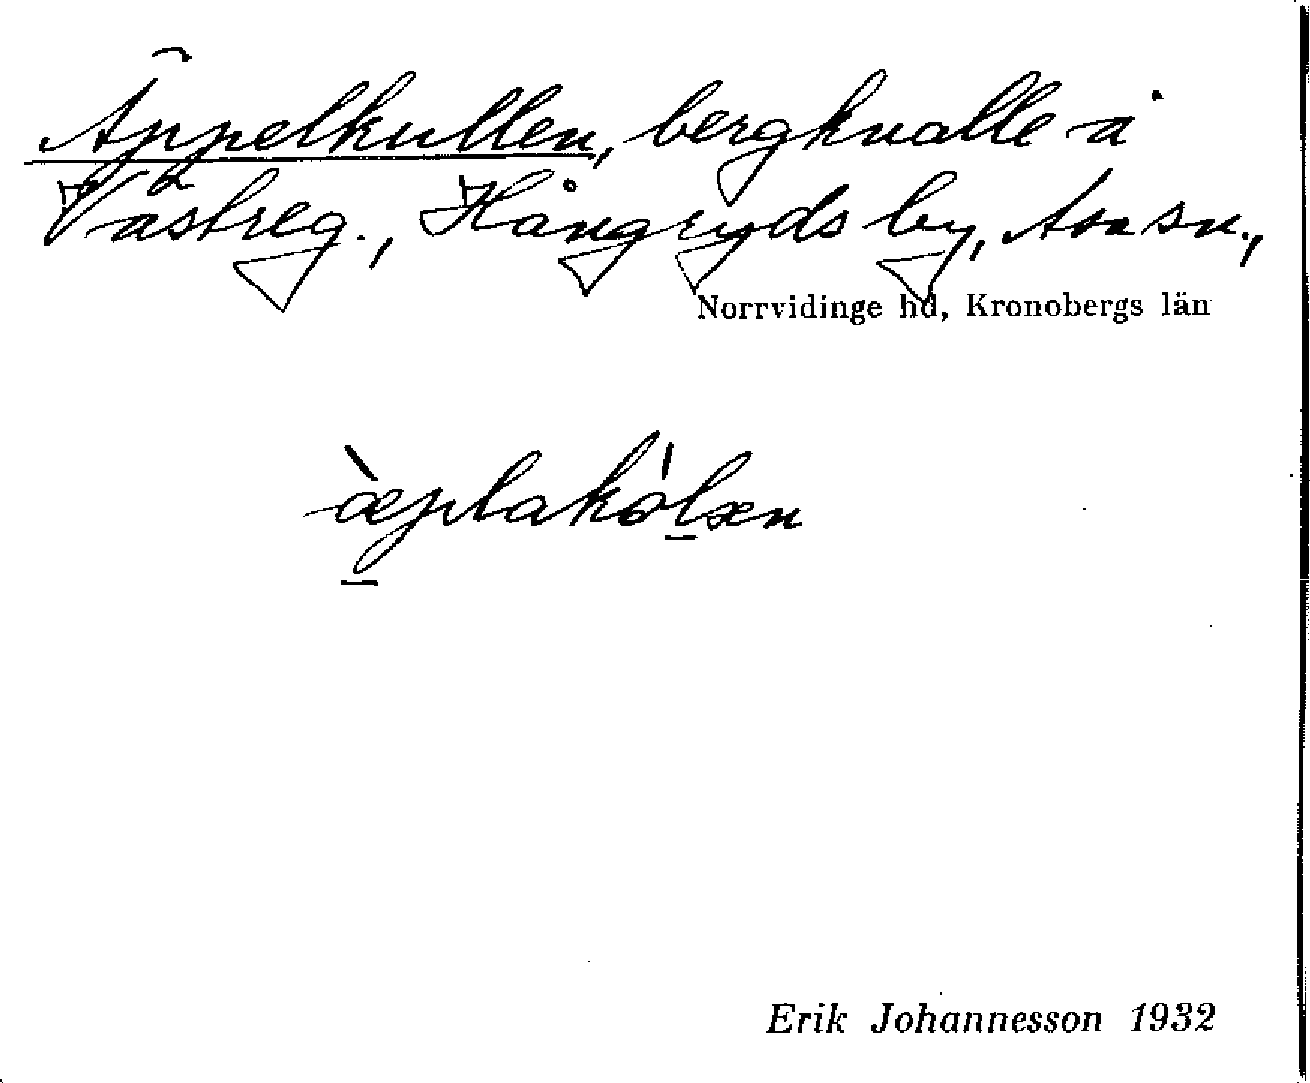 Äppelkullen, bergknalle å
Västreg., Hångryds by, Asa sn.,
Norrvidinge hd, Kronobergs län
æ̀plakólæn
Erik Johannesson 1932